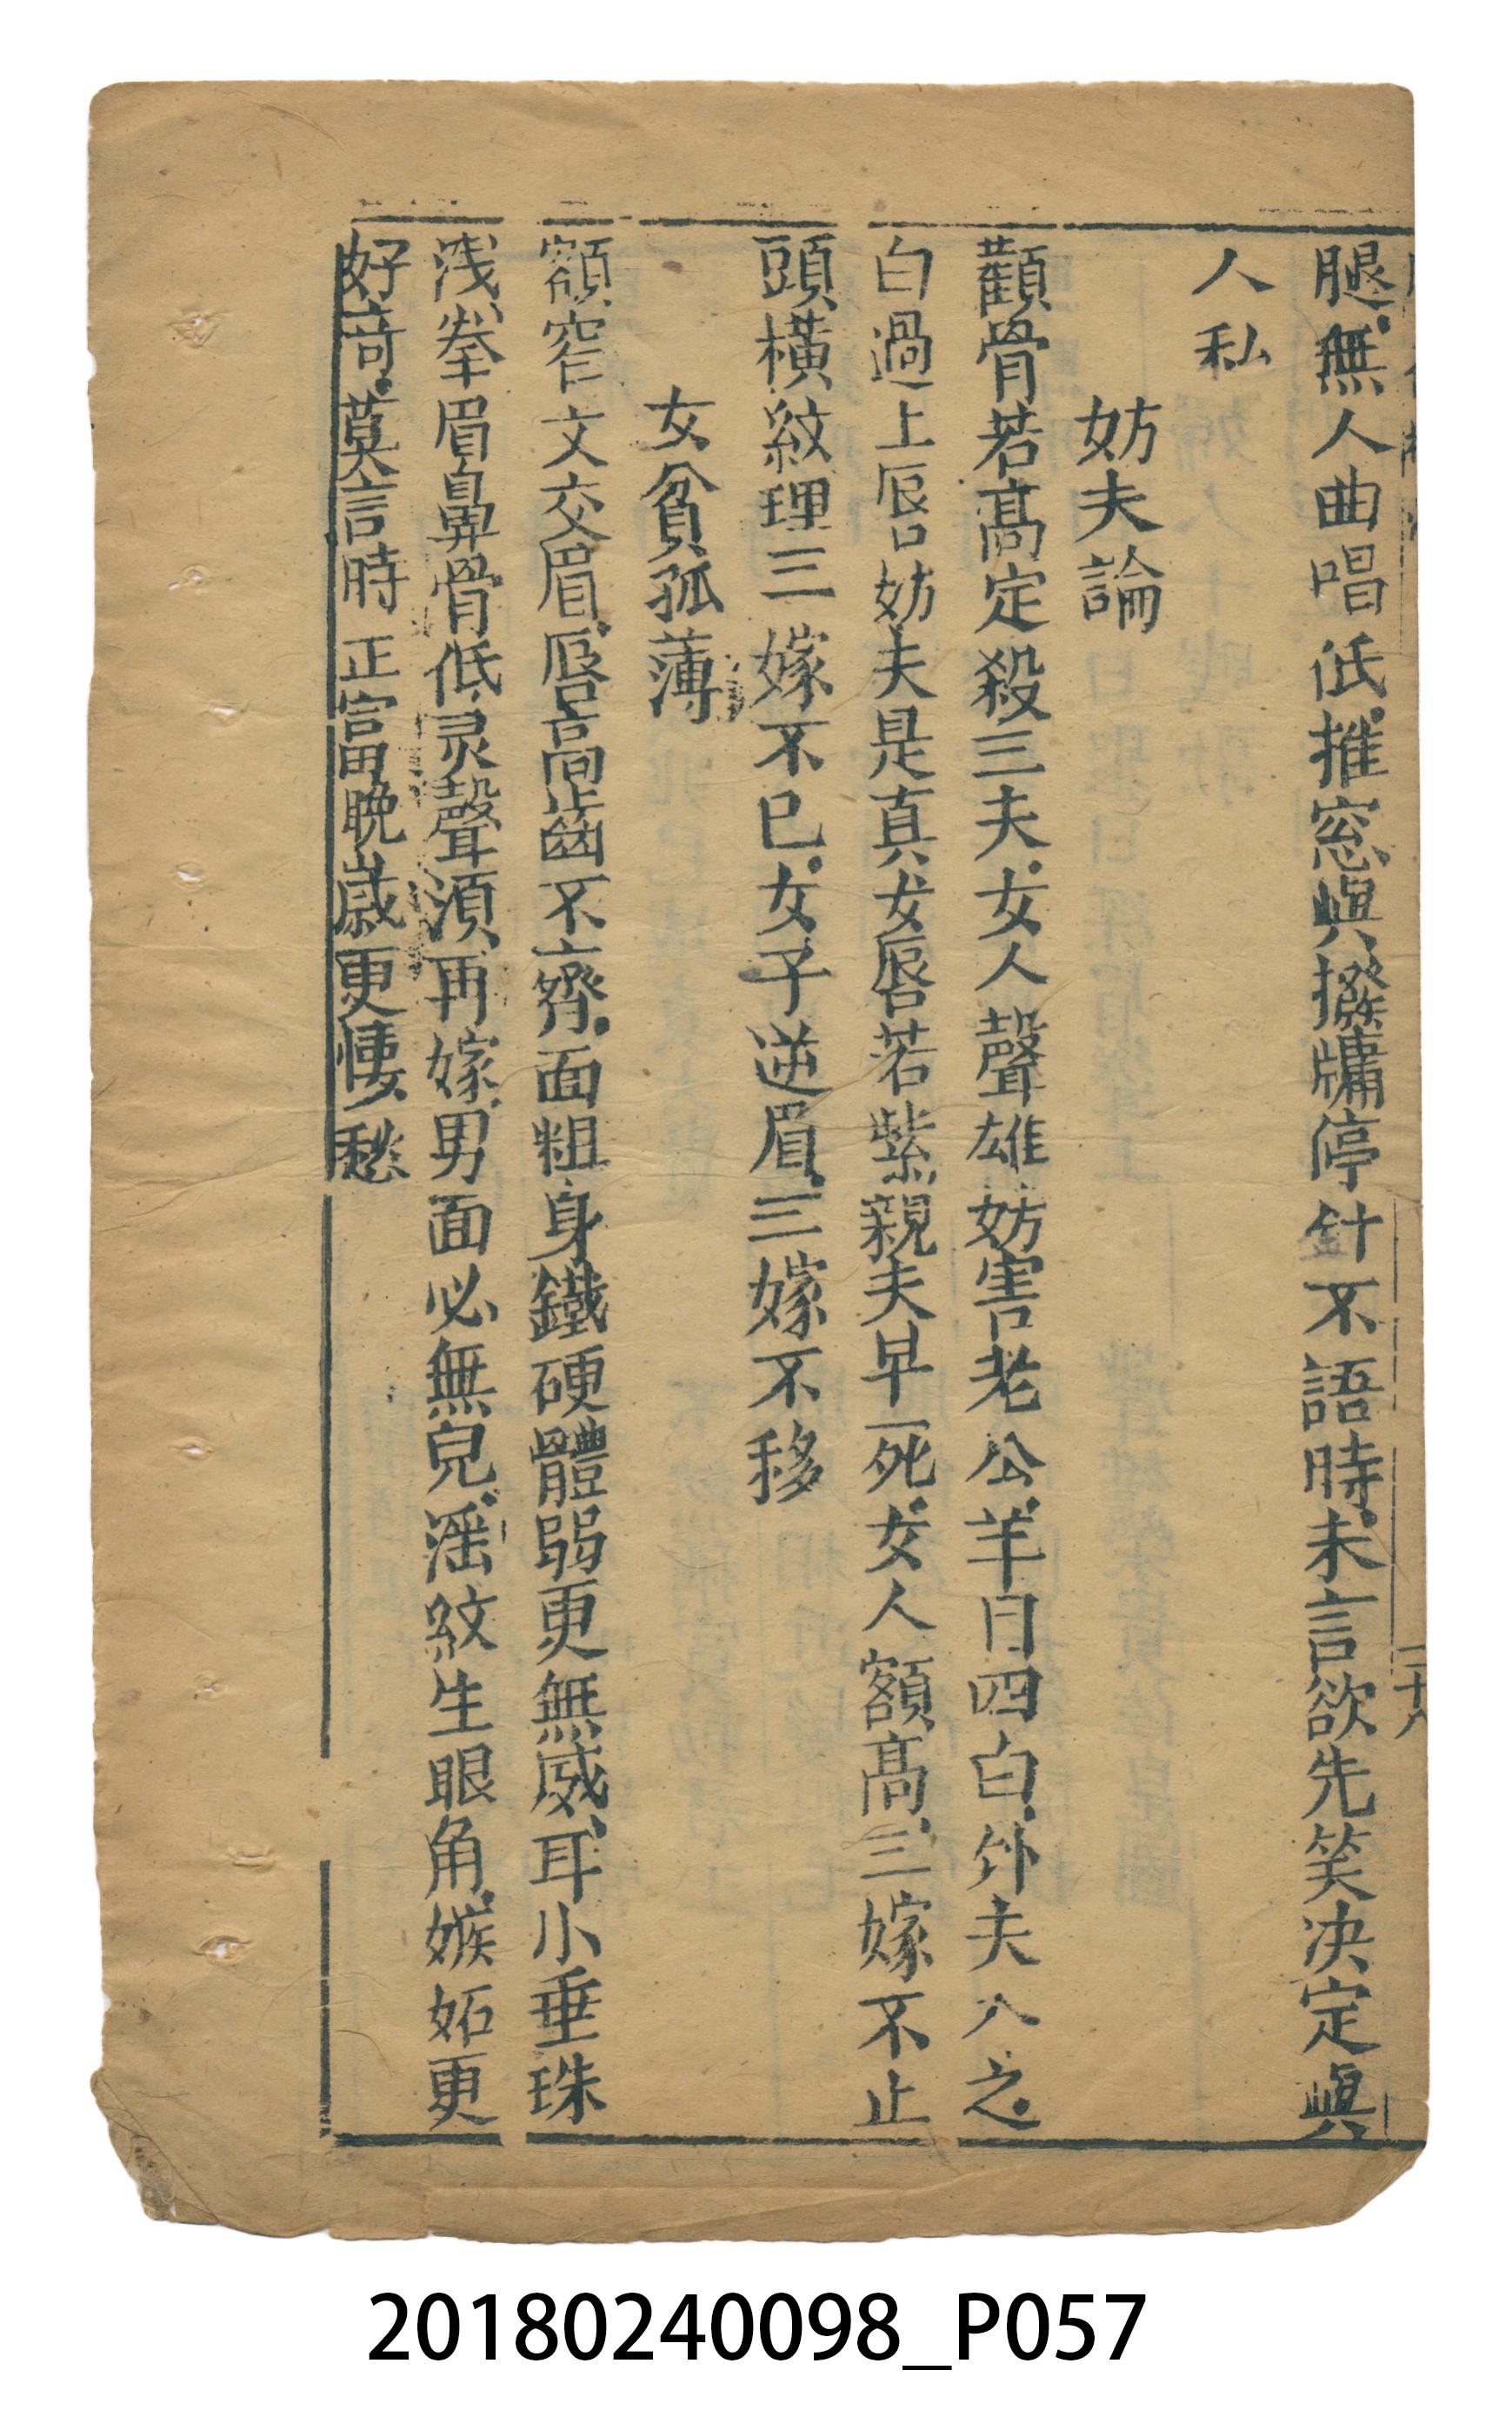 腿無人曲唱低推窓與撥牗停針不語時未言欲先笑决定與
人私
妨夫論
顴骨若高定殺三夫女人聲雄妨害老公羊目四白外夫入之
白過上唇妨夫是真女唇若紫親夫早死女人額高三嫁不止
頭橫紋理三嫁不已女子逆眉三嫁不移
女貧孤薄
額窄文交眉唇高齒不齊面粗身鐵硬體弱更無威耳小垂珠
浅拳眉鼻骨低灵聲湏再嫁男面必無兒淫紋生眼角嫉妬更
好竒莫言時正富晩歲更悽愁
二十八
20180240098_P057